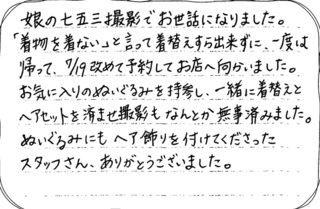 娘の七五三撮影でお世話になりました。
「着物を着ない」と言って着替えすら出来ずに、一度は
帰って、7/19改めて予約してお店へ向かいました。
お気に入りのぬいぐるみを持参し、一緒に着替えと
ヘアセットを済ませ撮影もなんとか無事済みました。
ぬいぐるみにもヘア飾りを付けてくださった
スタッフさん、ありがとうございました。